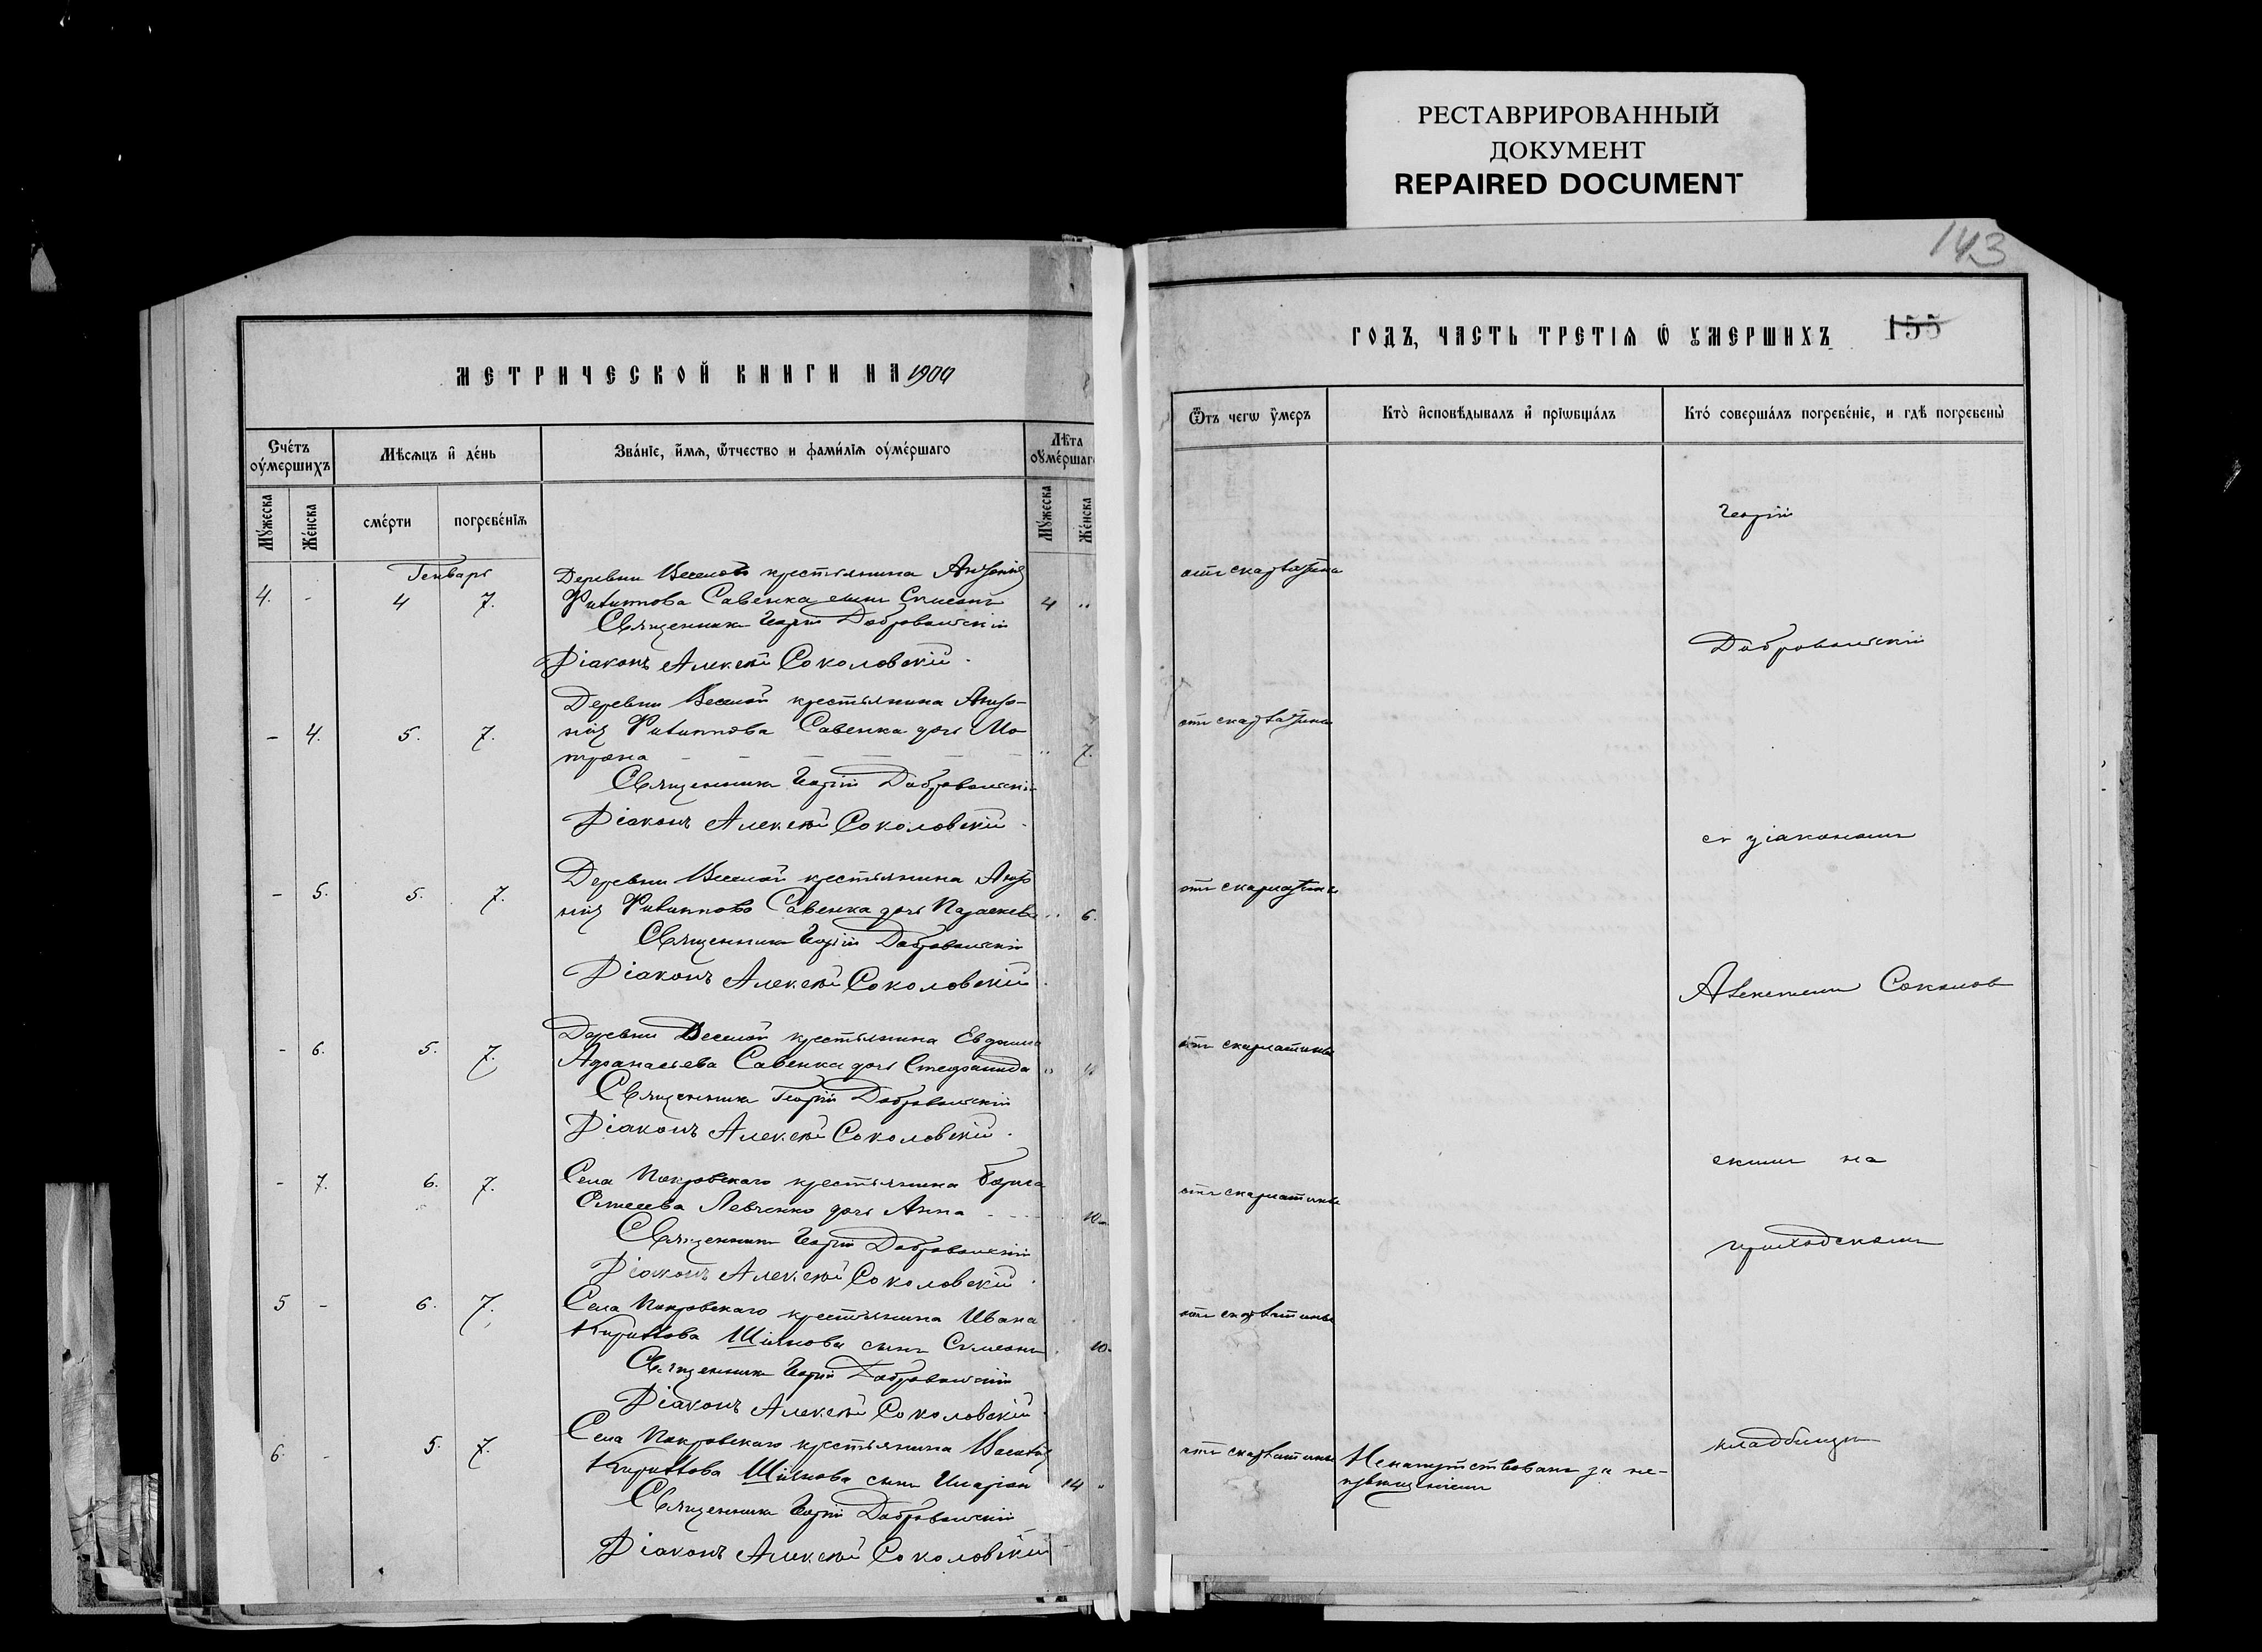 РЕСТАВРИРОВАННЫЙ
ДОКУМЕНТ
REPAIRED DOCUMENT
143
МЕТРИЧЕСКОЙ КНИГИ НА 1900
Счетъ оумершихъ
Мѣсяцъ и день
Званіе, имя, отчество и фамилія оумершаго
Лѣта оумершаго
Мужеска
Женска
смерти
погребенія
Мужеска
Женска
Генварь
4. - 4 7. Деревни Веселой крестьянина Антонія
Филиппова Савенка сынъ Симеонъ 4 "
Священникъ Георгій Добровольскій
Діаконъ Алексѣй Соколовскій.
Деревни Веселой крестьянина Анто-
- 4. 5. 7. нія Филиппова Савенка дочь Ма-
трона " 7.
Священникъ Георгій Добровольскій
Діаконъ Алексѣй Соколовскій.
Деревни Веселой крестьянина Анто
- 5. 5. 7. нія Филиппова Савенка дочь Параскева " 6.
Священникъ Георгій Добровольскій
Діаконъ Алексѣй Соколовскій.
Деревни Веселой крестьянина
- 6. 5. 7. Афанасьева Савенка дочь Стефанида "
Священникъ Георгій Добровольскій
Діаконъ Алексѣй Соколовскій.
- 7. 6. 7. Села Покровскаго крестьянина
Левченко дочь Анна 10
Священникъ Георгій Добровольскій
Діаконъ Алексѣй Соколовскій.
5 - 6. 7. Села Покровскаго крестьянина Ивана
Кириллова сынъ Симеонъ 10
Священникъ Георгій Добровольскій
Діаконъ Алексѣй Соколовскій.
6. - 5. 7. Села Покровскаго крестьянина Василія
Кириллова сынъ Иларіон 14 "
Священникъ Георгій Добровольскій
Діаконъ Алексѣй Соколовскій
ГОДЪ, ЧАСТЬ ТРЕТІЯ Ѿ УМЕРШИХЪ 155
Ѿтъ чегω умеръ
Кто исповѣдывалъ и пріωбщалъ
Кто совершалъ погребеніе, и гдѣ погребены
Георгій
отъ скарлатины
Добровольскій
отъ скарлатины
съ діакономъ
отъ скарлатины
Алексѣемъ Соколов
отъ скарлатины
скимъ на
отъ скарлатины
приходскомъ
отъ скарлатины
кладбищѣ
отъ скарлатины Ненапутствованъ за не-